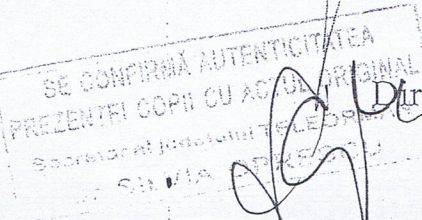 SE CONFIRMĂ AUTENTICITATEA
PREZENTEI COPII CU ACTUL ORIGINAL
Dir
Secretarul județului TELEORMAN
SILVIA